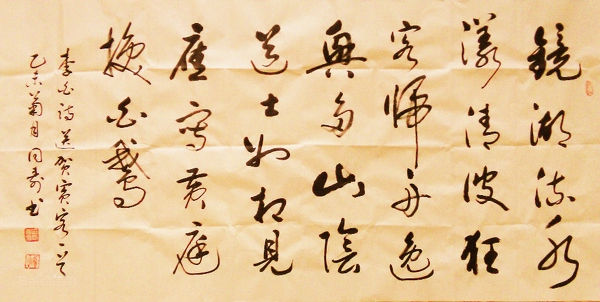 鏡湖流水
漾清波狂
客歸舟逸
興多山陰
道士如相見
應寫黃庭
換白鵝
李白詩送賀賓客一首
乙未菊月同壽書